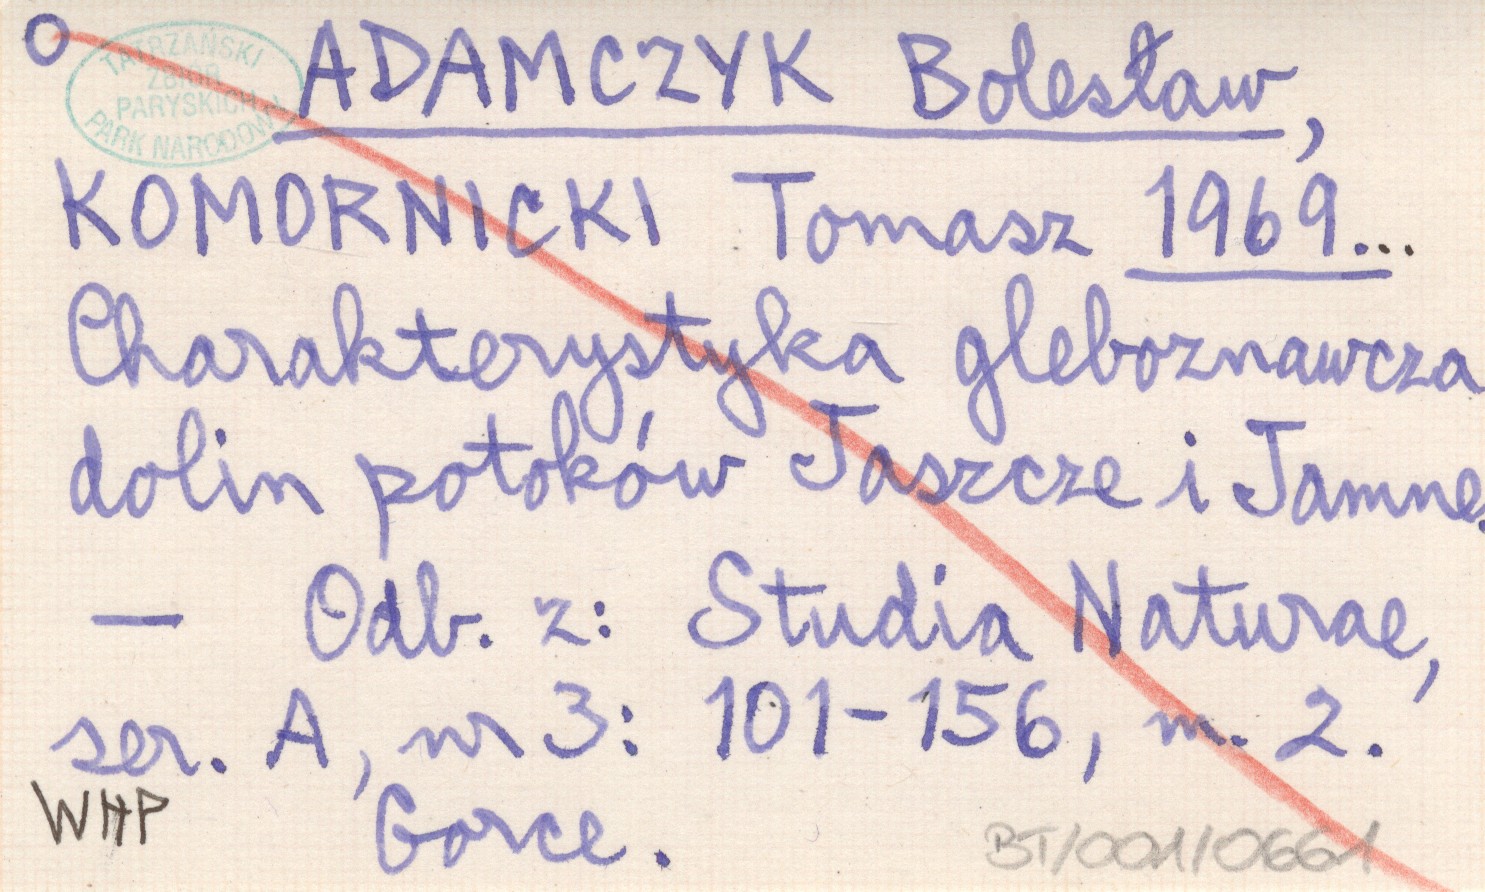 O
TATRZAŃSKI
ZBIÓR
PARYSKICH
PARK NARODOWY
ADAMCZYK Bolesław,
KOMORNICKI Tomasz 1969...
Charakterystyka gleboznawcza
dolin potoków Jaszcze i Jamne.
— Odb. z: Studia Naturae,
ser. A, nr 3: 101-156, m. 2.
WHP Gorce.
BT/001/0661